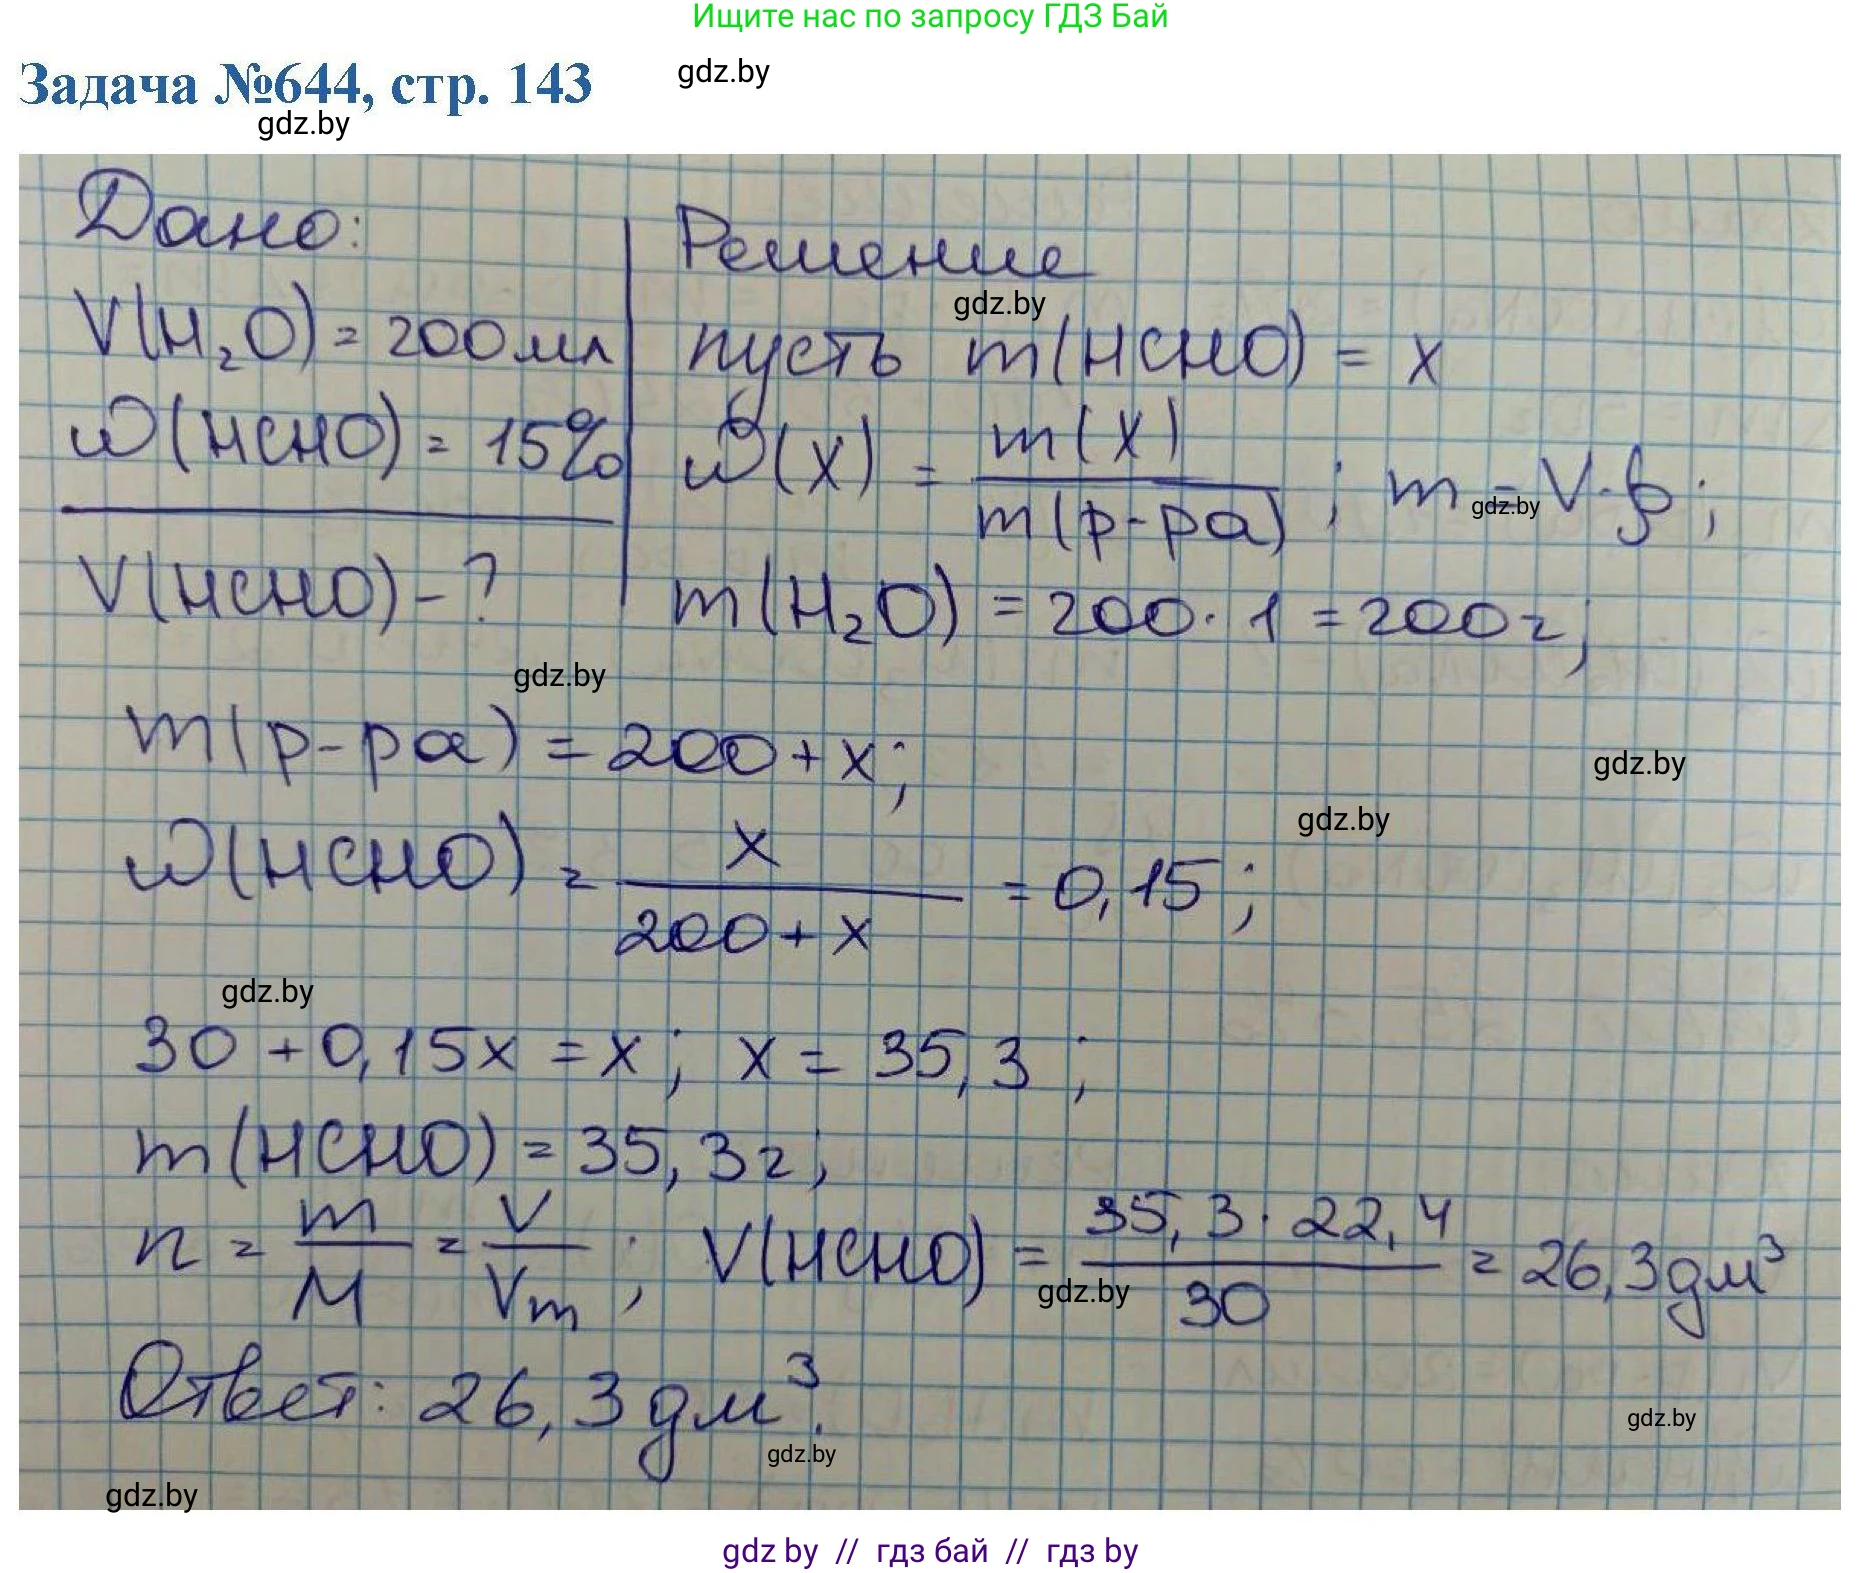 Ищите нас по запросу ГДЗ Бай
Задача №644, стр. 143
gdz.by
gdz.by
Дано:
V(H₂O) = 200 мл
ω(HCHO) = 15%
V(HCHO) - ?
Решение
gdz.by
пусть m(HCHO) = x
ω(X) = m(X) / m(р-ра) ; m = V·ρ;
gdz.by
m(H₂O) = 200 · 1 = 200 г;
gdz.by
m(р-ра) = 200 + x;
gdz.by
gdz.by
ω(HCHO) = x / 200 + x = 0,15;
gdz.by
30 + 0,15x = x; x = 35,3;
m(HCHO) = 35,3 г;
n = m / M = V / Vm ; V(HCHO) = 35,3 · 22,4 / 30 = 26,3 дм³
gdz.by
Ответ: 26,3 дм³.
gdz.by
gdz.by
gdz.by
gdz by // гдз бай // гдз by